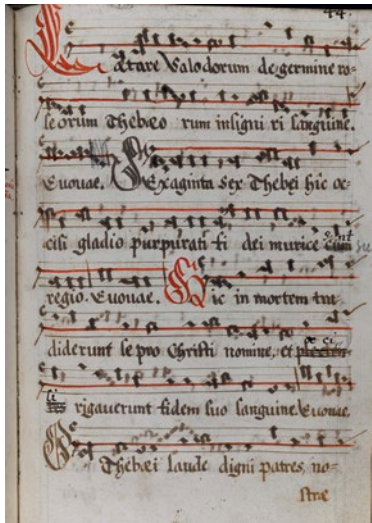 44.
Lætare Salodorum de germine ro=
seorum Thebæo rum insigni ri sanguine.
Euouae. Sexaginta sex Thebei hic oc=
cisi gladio purpurati fi dei murice
regio. Euouae. Hic in mortem tra=
diderunt se pro Christi nomine, et
rigaverunt fidem suo sanguine. Euouae.
O Thebæi laude digni patres, no=
stræ